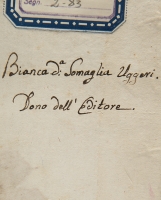 Segn. 2-83
Bianca d.a Somaglia Uggeri.
Dono dell' Editore.